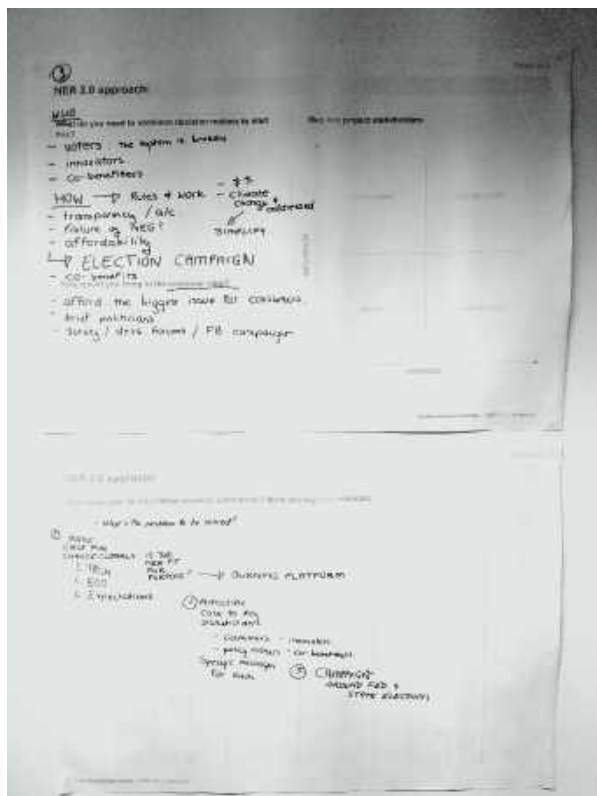 3
NER 2.0 approach
WHO
What do you need to convince decision makers to start this?
- voters : the system is broken
- innovators
- co-benefiters
HOW → Rules & work
- $$
- Climate change & addressed
SIMPLIFY
- transparency / a/c
- failure of NEG?
- affordability
↳ ELECTION CAMPAIGN
- co-benefits
- afford the biggest issue for consumers
- brief politicians
- survey / delib forums / FB campaign
Map key project stakeholders
NER 2.0 approach
- What's the problem to be solved?
1 MAKE
CASE FOR
CHANGE CLEARLY
1. TECH
2. ECO
3. Expectations
IS THE
NER FIT
FOR
PURPOSE?
→ BURNING PLATFORM
2 Articulate
case to key
stakeholders
- customers - innovators
- policy makers - co-beneficiaries
Specific messages
for each
3 CAMPAIGN
AROUND FED &
STATE ELECTIONS